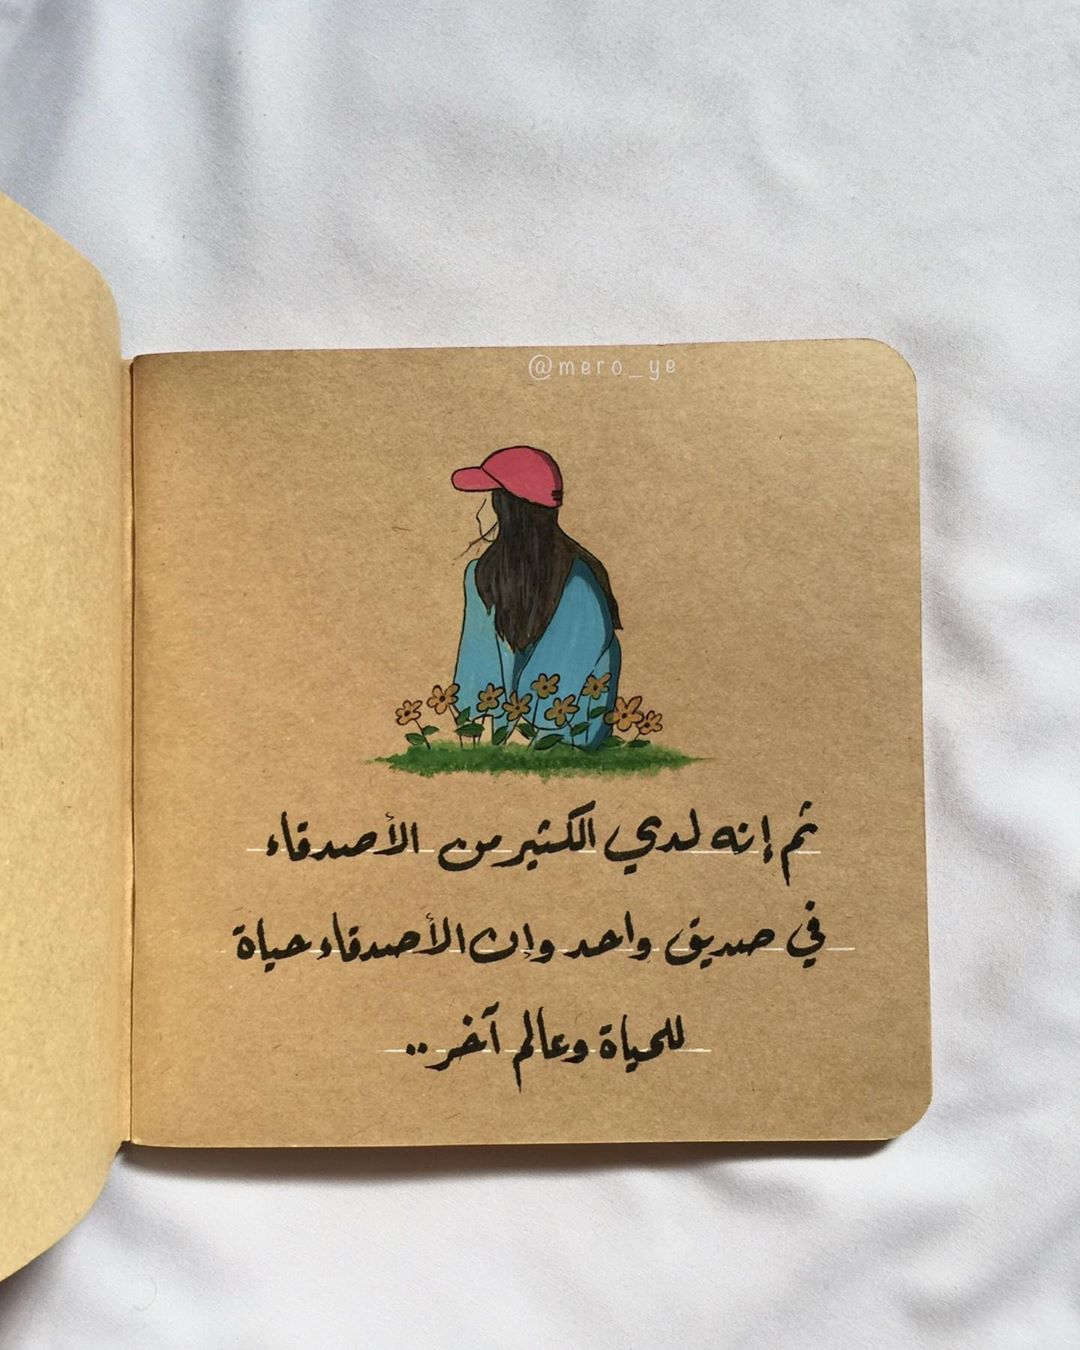 @mero_ye
ثم إنه لدي الكثير من الأصدقاء
في صديق واحد وإن الأصدقاء حياة
للحياة وعالم آخر..